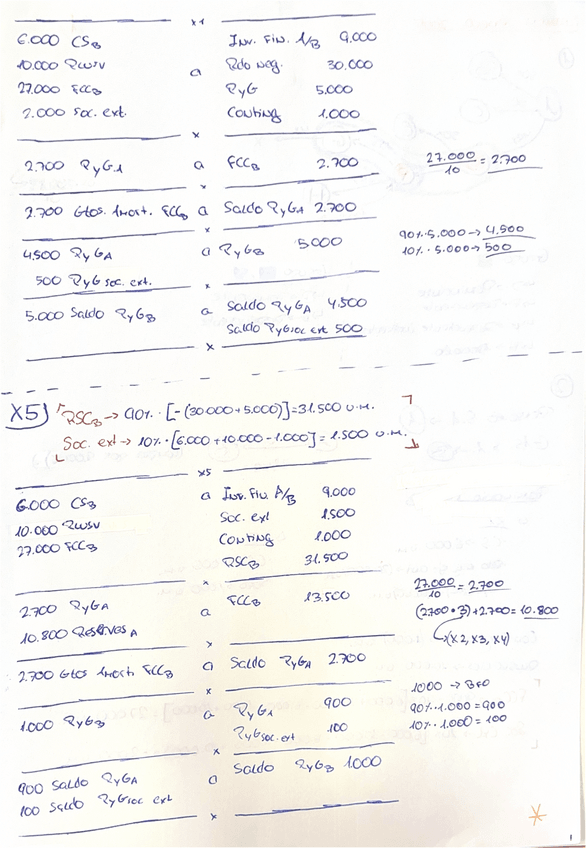 x1
6.000 CSB a Inv. Fin. A/B 9.000
10.000 RUSV Rdo Neg. 30.000
27.000 FCCB PyG 5.000
2.000 Soc. ext. Conting 1.000
x
2.700 PyGA a FCCB 2.700 27.000/10 = 2.700
x
2.700 Gtos. Amort. FCCB a Saldo PyGA 2.700
x
4.500 PyGA a PyGB 5.000 90%·5.000→ 4.500
500 PyG soc. ext. 10%·5.000→ 500
x
5.000 Saldo PyGB a Saldo PyGA 4.500
Saldo PyG soc ext 500
x
X5) RSCB → 90%·[-(30.000+5.000)]=31.500 u.m.
Soc. ext → 10%·[6.000+10.000-1.000]= 1.500 u.m.
x5
6.000 CSB a Inv. Fin. A/B 9.000
10.000 RUSV Soc. ext 1.500
27.000 FCCB Conting 1.000
RSCB 31.500
x
2.700 PyGA a FCCB 13.500 27.000/10 = 2.700
10.800 Reservas A (2.700·3)+2.700= 10.800
→(x2, x3, x4)
x
2.700 Gtos Amort. FCCB a Saldo PyGA 2.700
x
1.000 PyGB a PyGA 900 1000 → BFO
PyG soc. ext 100 90%·1.000=900
10%·1.000=100
x
900 Saldo PyGA a Saldo PyGB 1.000
100 Saldo PyG soc ext
x
1